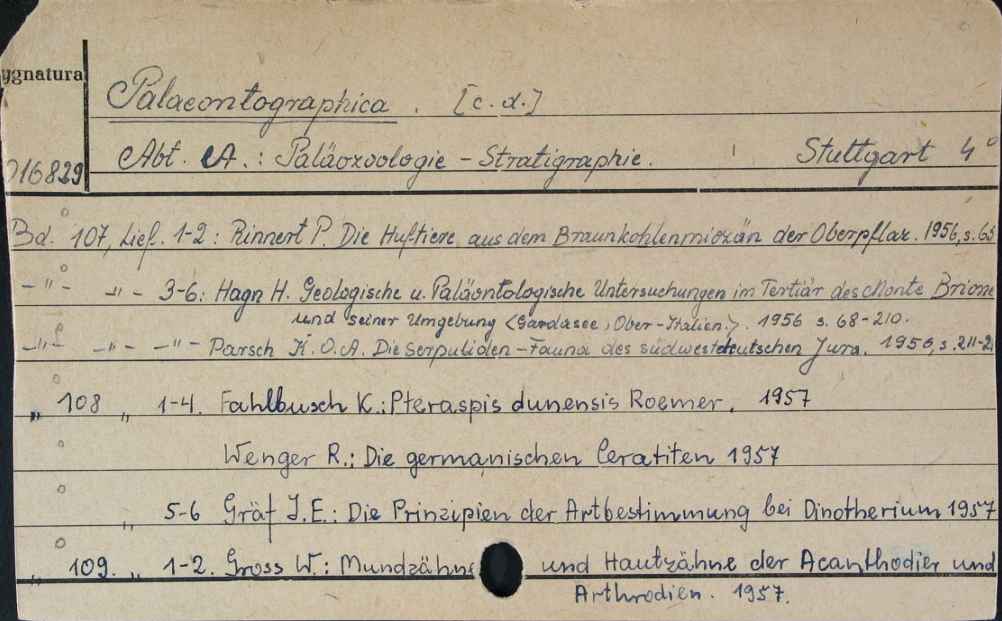 ygnatura
Palaeontographica . [c. d.]
Abt. A.: Paläozoologie - Stratigraphie. Stuttgart 4°
16829
Bd. 107, Lief. 1-2: Rinnert P. Die Huftiere aus dem Braunkohlenmiozän der Oberpflaz. 1956, s. 65
-"- -"- 3-6: Hagn H. Geologische u. Paläontologische Untersuchungen im Tertiär des Monte Brione
und seiner Umgebung <Gardasee, Ober-Italien>. 1956 s. 68-210.
-"- -"- -"- Parsch K.O.A. Die Serpuliden-Fauna des südwestdeutschen Jura. 1956, s. 211-2
" 108 " 1-4. Fahlbusch K.: Pteraspis dunensis Roemer. 1957
Wenger R.: Die germanischen Ceratiten 1957
" 5-6 Gräf I.E.: Die Prinzipien der Artbestimmung bei Dinotherium 1957
" 109. " 1-2. Gross W.: Mundzähne und Hautzähne der Acanthodier und
Arthrodien. 1957.